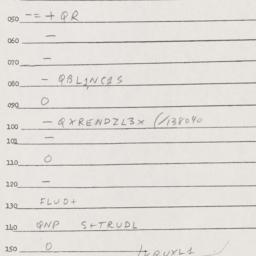 050 -= + QR
060 -
070 -
080 - QBL1NC1S
090 O
100 - QXREWDZL3X (/138040
101 -
110 O
120 -
130 FLUD+
110 QNP S+TRUDL
150 O